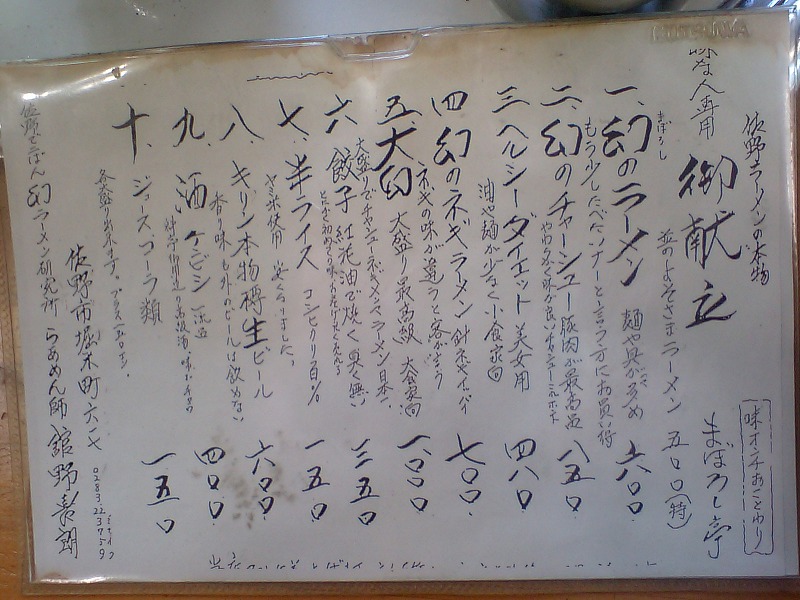 佐野ラーメンの本物
味オンチおことわり
味な人専用
御献立
まぼろし亭
並のよそさまラーメン 五〇〇(特)
まぼろし
一、幻のラーメン 麺や具が多め 六〇〇
もう少したべたいナーと言う方にお買い得
二、幻のチャーシュー 豚肉が最高品 八五〇
三、ヘルシーダイエット 美女用 四八〇
油や麺が少なく小食家向
四 幻のネギラーメン 針ネギイッパイ 七〇〇
ネギの味が違うと客がゆう
五 大幻 大盛り最高級 大食家向 一〇〇〇
大盛りでチャーシューネギメンマラーメン日本一
六 餃子 紅花油で焼く臭く無い 三五〇
七、半ライス コシヒカリ百% 一五〇
安くなりました
八、キリン本物樽生ビール 六〇〇
香り味も外のビールは飲めない
九、酒 ケンビシ 一流品 四〇〇
十、ジュース、コーラ類 一五〇
各大盛り出来ます。
佐野市堀米町六ノ七
0283 22 3759
佐野でごはん 幻ラーメン研究所 らぁめん師 舘野喜朗